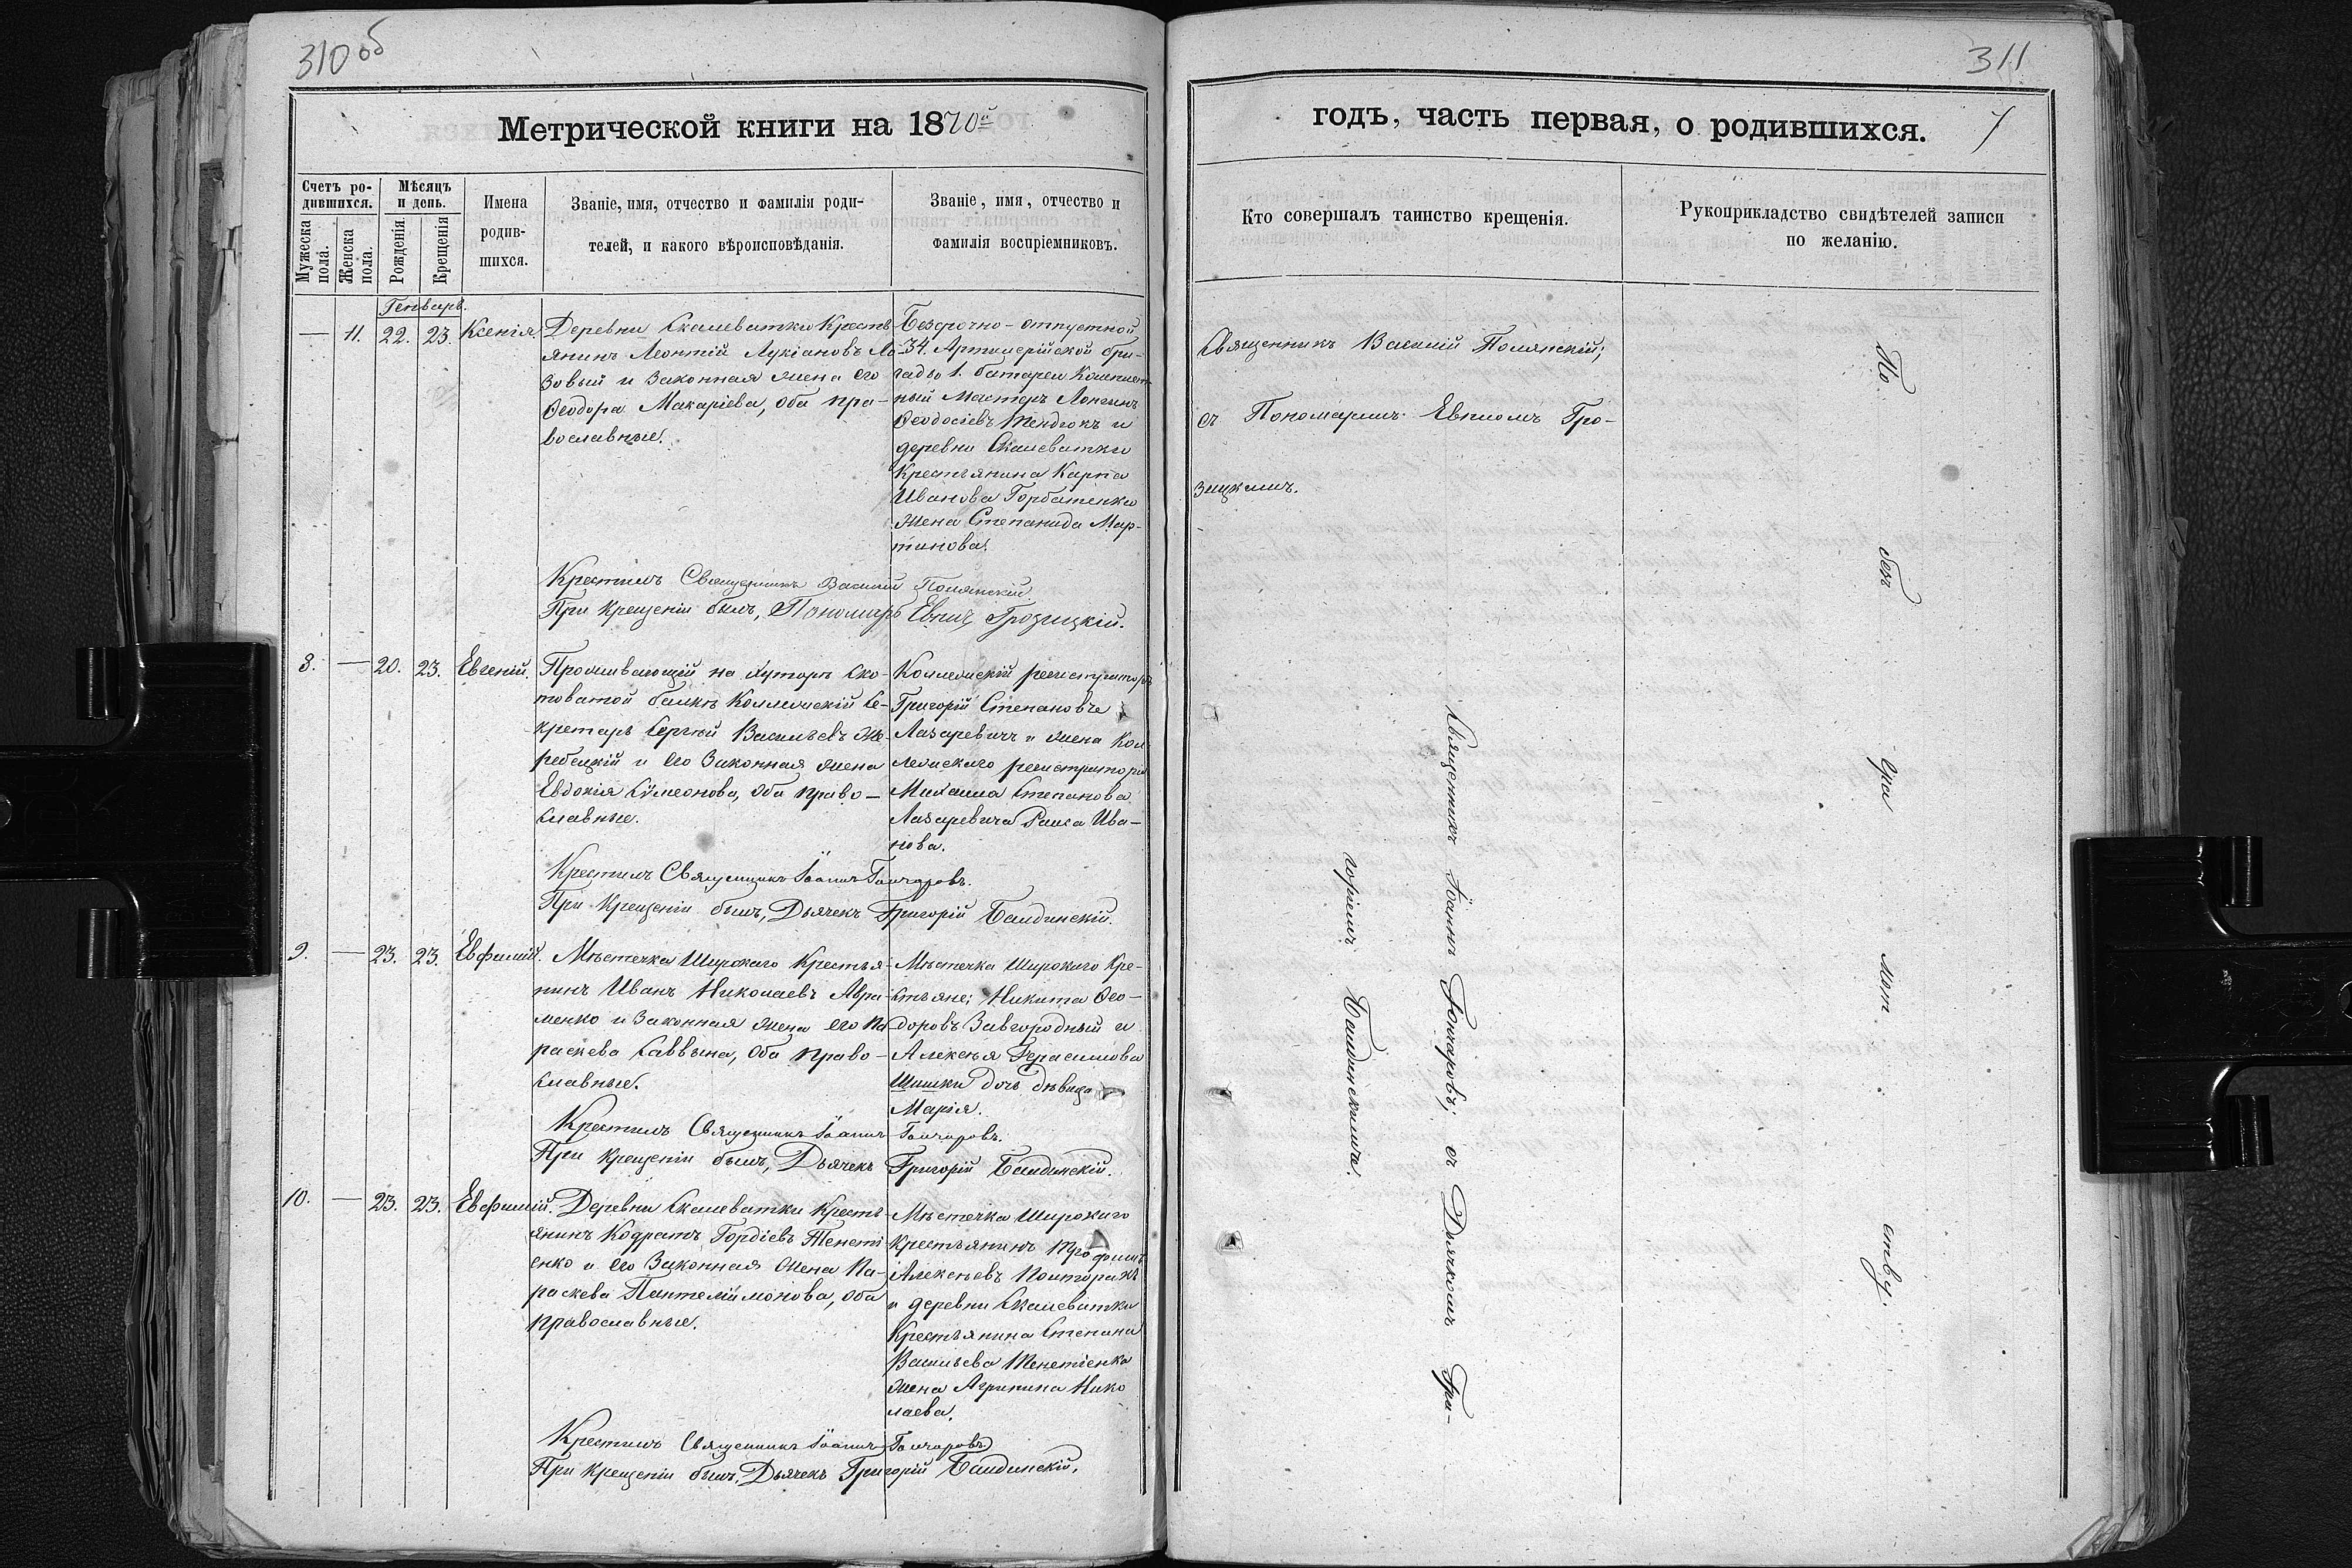 310 об
Метрической книги на 1870й
Счетъ родившихся.
Мужеска пола.
Женска пола.
Мѣсяцъ и день.
Рожденія.
Крещенія
Имена родившихся.
Званіе, имя, отчество и фамилія родителей, и какого вѣроисповѣданія.
Званіе, имя, отчество и фамилія воспріемниковъ.
Генварь.
— 11. 22. 23. Ксенія.
Деревни Скалеватки Кресть
янинъ Леонтій Лукіановъ Ло
зовый и законная жена его
Ѳеодора Макаріева, оба пра-
вославные.
Безсрочно-отпустной
34. Артилерійской бри-
гады 1. батареи
ный Мастеръ Лонгинъ
Ѳеодосіевъ и
деревни Скалеватки
Крестьянина Карпа
Иванова Горбатенка
жена Степанида Мар-
тинова.
Крестилъ Священникъ Василій Полянскій
При Крещеніи былъ, Пономарь Евпл Грозицкій.
8. — 20. 23. Евгеній.
Проживающій на хуторѣ Ско-
товатой балкѣ Коллежскій Се-
кретарь Сергѣй Васильевъ Же-
ребецкій и его законная жена
Евдокія Сѵмеонова, оба право-
славные.
Коллежскій регистраторъ
Григорій Степановъ
Лазаревичъ и жена Кол-
лежскаго регистратора
Михаила Степанова
Лазаревича Раиса Ива-
нова.
Крестилъ Священникъ Іоаннъ Гончаровъ.
При Крещеніи былъ, Дьячекъ Григорій Балдинскій.
9. — 23. 23. Евфимій.
Мѣстечка Широкаго Крестья-
нинъ Иванъ Николаевъ Авра-
менко и законная жена его Па-
раскева Саввина, оба право-
славные.
Мѣстечка Широкаго Кре-
стьяне; Никита Ѳео-
доровъ Завгородный и
Алексѣя Герасимова
Шишки дочь дѣвица
Марія.
Крестилъ Священникъ Іоаннъ Гончаровъ.
При Крещеніи былъ, Дьячекъ Григорій Балдинскій.
10. — 23. 23. Евфимій.
Деревни Скалеватки Кресть-
янинъ Кодратъ Гордіевъ Тенеті
енко и его законная жена Па-
раскева Пантелѵимонова, оба
православные.
Мѣстечка Широкаго
Крестьянинъ Трофимъ
Алексѣевъ
и деревни Скалеватки
Крестьянина Степана
Васильева Тенетіенка
жена Агрипина Нико
лаева.
Крестилъ Священникъ Іоаннъ Гончаровъ
При Крещеніи былъ, Дьячекъ Григорій Балдинскій.
311
годъ, часть первая, о родившихся.
7
Кто совершалъ таинство крещенія.
Рукоприкладство свидѣтелей записи по желанію.
Священникъ Василій Полянскій;
съ Пономаремъ Евпломъ Гро-
зицкимъ.
Священникъ Іоаннъ Гончаровъ; съ Дьячкомъ Гри-
горіемъ Балдинскимъ.
По без гра мот ству.